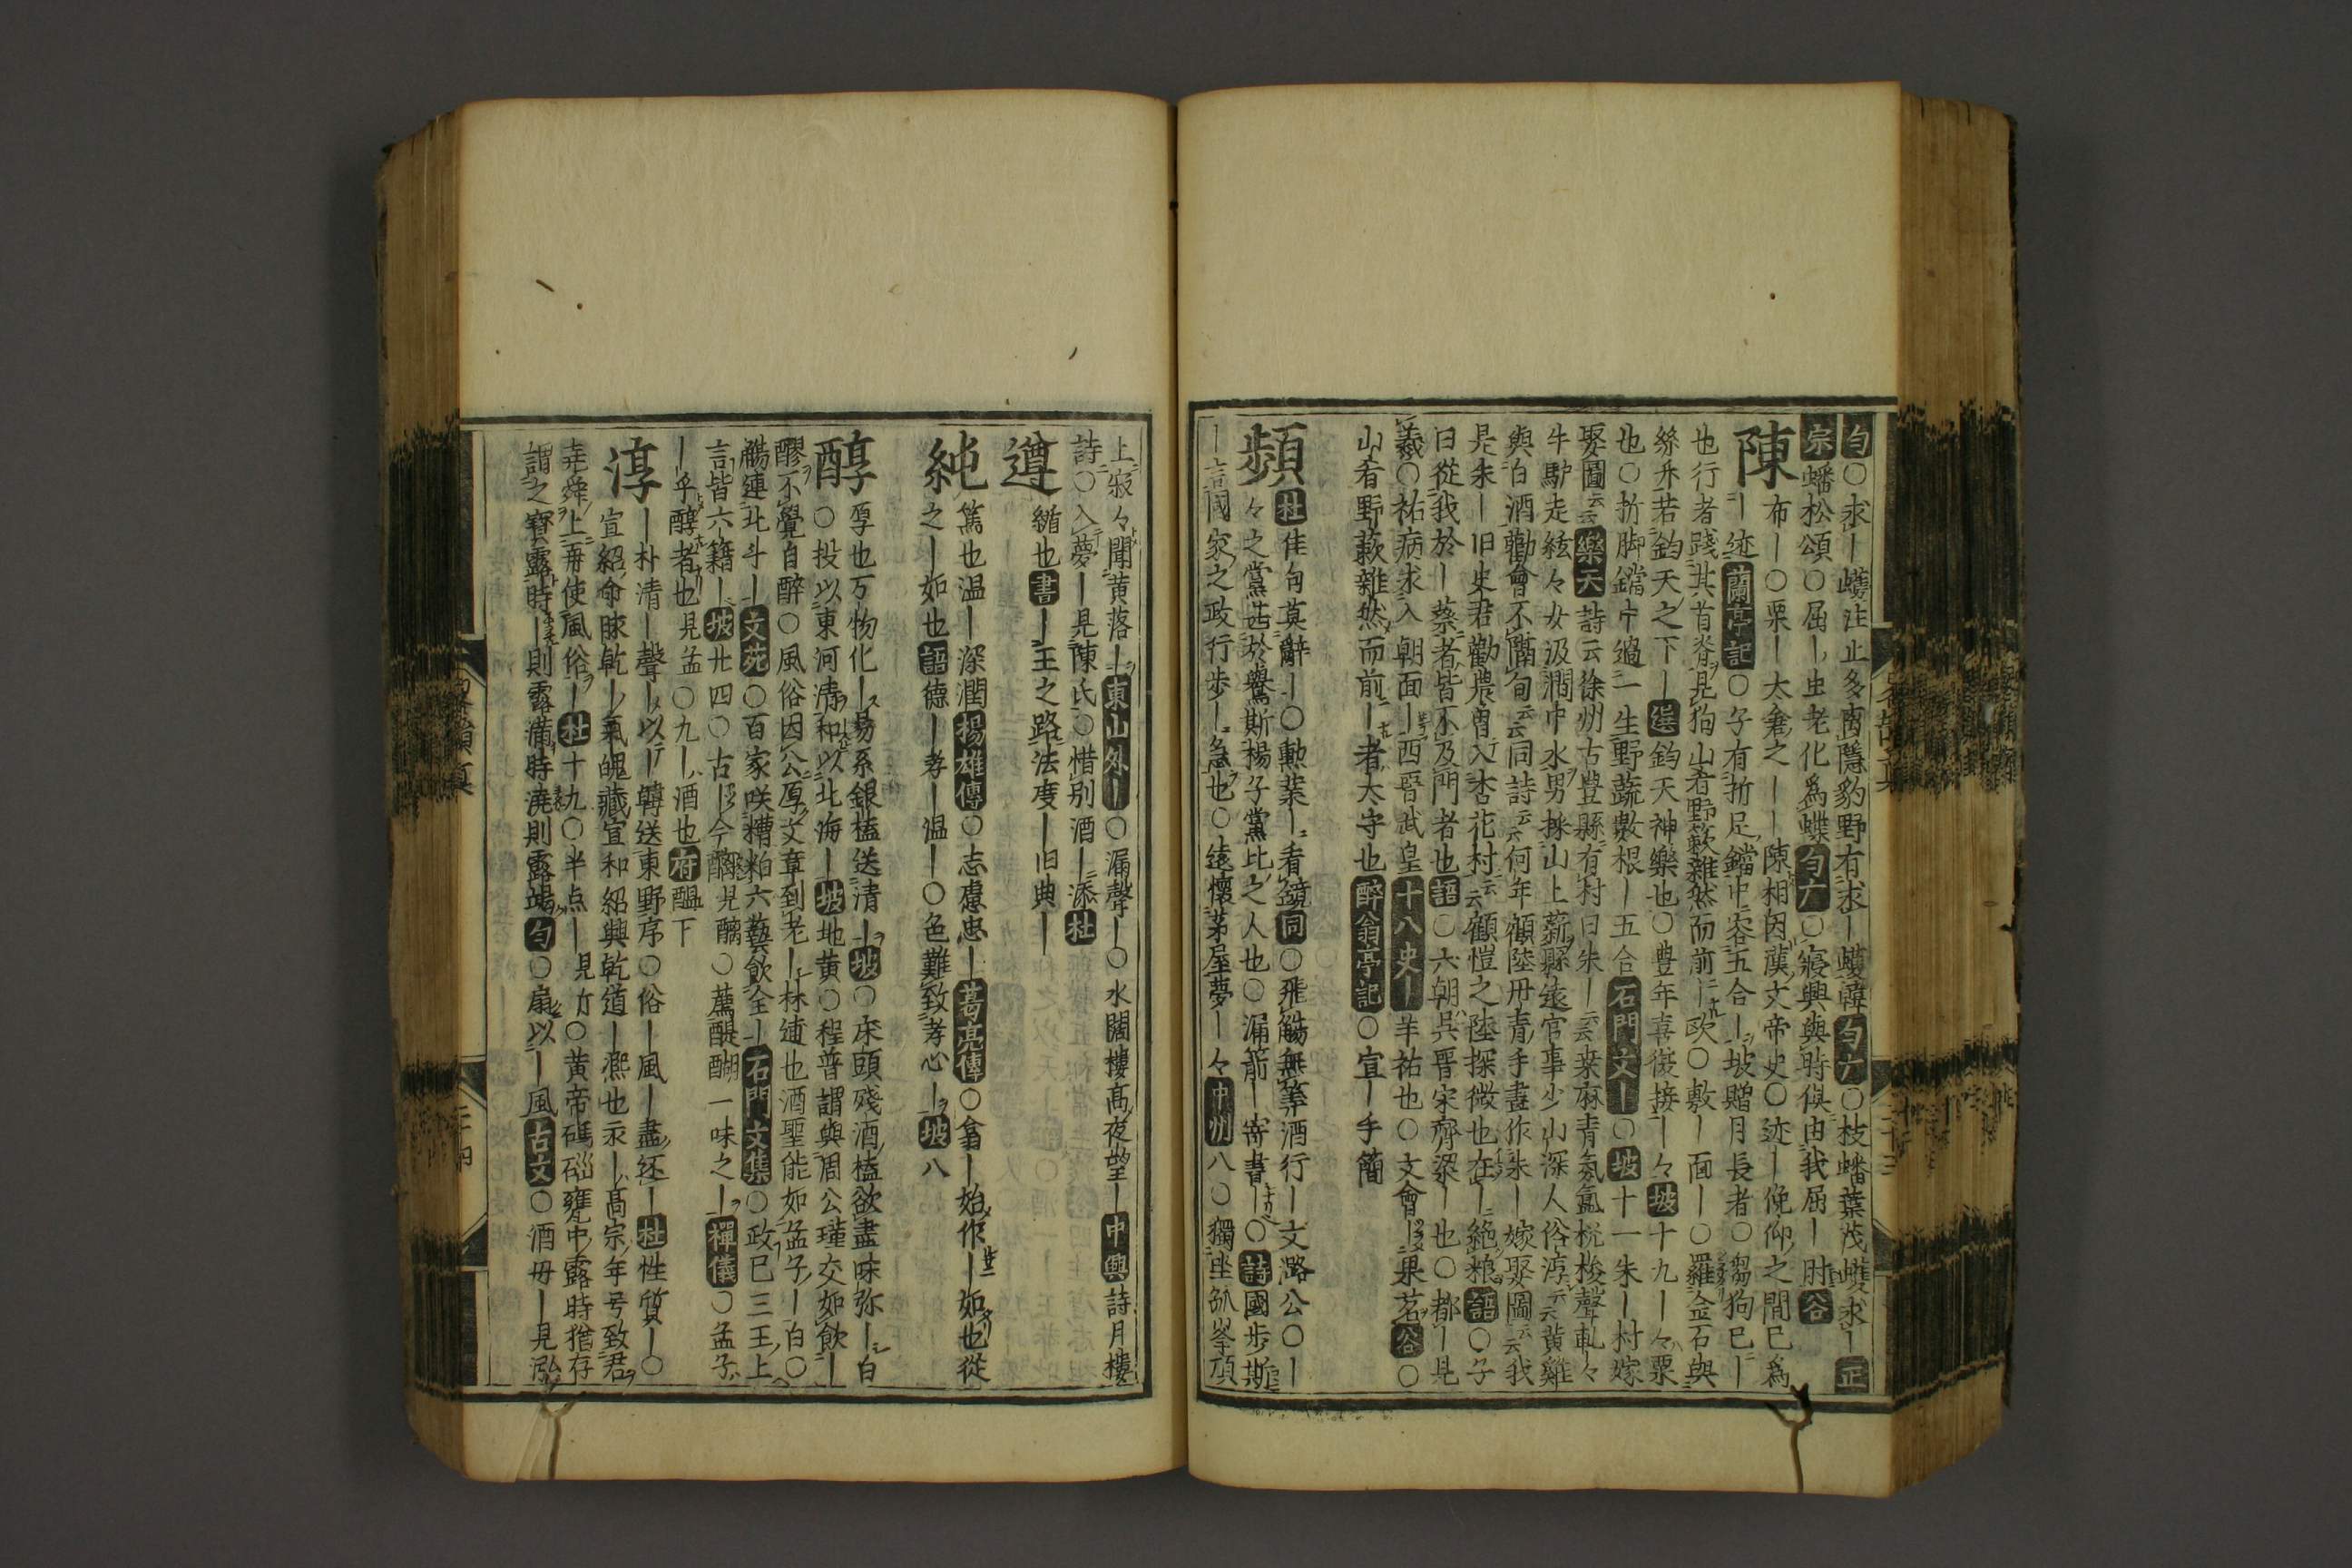 勻○求｜蠖注止多南隱豹野有求｜蠖韓勻广○枝蟠葉茂蠖求｜正
宗蟠松頌○屈｜虫老化爲蝶勻广○寢興與時俱由我屈｜肘谷
陳布｜○栗｜太倉之｜｜陳相因漢文帝史○迹｜俛仰之間已爲
｜迹蘭亭記○子有折足鐺中容五合｜坡贈月長者○芻狗已｜
也行者踐其首脊見狗山肴野蔌雜然而前｜歐○敷｜面｜○羅金石與
絲竹若鈞天之下｜選鈞天神樂也○豊年喜從接｜々坡十九｜々粟
也○折脚鐺中過一生野蔬數根｜五合石門文｜○坡十一朱｜村嫁
娶圖云云樂天詩云徐州古豊縣有村曰朱｜云云桒麻青氛氳梭梭聲軋々
牛馿走紜々女汲澗中水男採山上薪縣遠官事少山深人俗淳云云黃雞
與白酒勸會不隔旬云云同詩云云何年顧陸丹青手畫作朱｜嫁娶圖云云我
是朱｜旧史君勸農曽入杏花村云云顧愷之陸探微也在｜絕粮語○子
曰從我於｜蔡者皆不及門者也語○六朝吳晋宋齊梁｜也○都｜見
羲○祐病求入朝面｜西晋武皇十八史｜羊祐也○文會｜果茗谷○
山肴野蔌雜然而前｜者太守也醉翁亭記○宣｜手簡
頻杜佳句莫辭｜○勲業｜看鏡同○飛觴無筭酒行｜文潞公○｜
々之黨甚於鸒斯楊子黨比之人也○漏箭｜寄書｜○詩國步斯
｜言國家之政行步｜急也○遠懷茅屋夢｜々中州八○獨坐孤峯頂
上寂々聞黃落｜東山外｜○漏聲｜○水闊樓髙夜望｜中興詩月樓
詩○入夢｜見陳氏○惜別酒｜添杜
遵循也書｜｜王之路法度｜｜旧典｜
純篤也温｜深潤揚雄傳○志慮忠｜葛亮傳○翕｜始作｜如也從
之｜如也語德｜孝｜温｜○色難致孝心｜坡八
醇厚也万物化｜易系銀榼送清｜坡○床頭殘酒榼欲盡味弥｜白
○投以東河清和以北海｜坡地黃○程普謂與周公瑾交如飲｜
醪不覺自醉○風俗因公厚文章到老｜林逋也酒聖能如孟子｜白○
觴連北斗｜文苑○百家咲糟粕六藝飲全｜石門文集○政已三王上
言皆六籍｜坡廿四○古｜今醨見醨○薦醍醐一味之｜禪儀○孟子
｜乎醇者也見孟○九｜酒也府醖下
淳｜朴清｜聲｜以｜韓送東野序○俗｜風｜盡还｜杜性質｜○
宣紹命脉乾｜氣魄藏宣和紹興乾道｜凞也汞｜髙宗年号致君
尭舜上再使風俗｜杜十九○半点｜見竹○黃帝碼碯甕中露時猶存
謂之寶露時｜則露滿時澆則露竭勻○扇以｜風古文○酒毋｜見泓